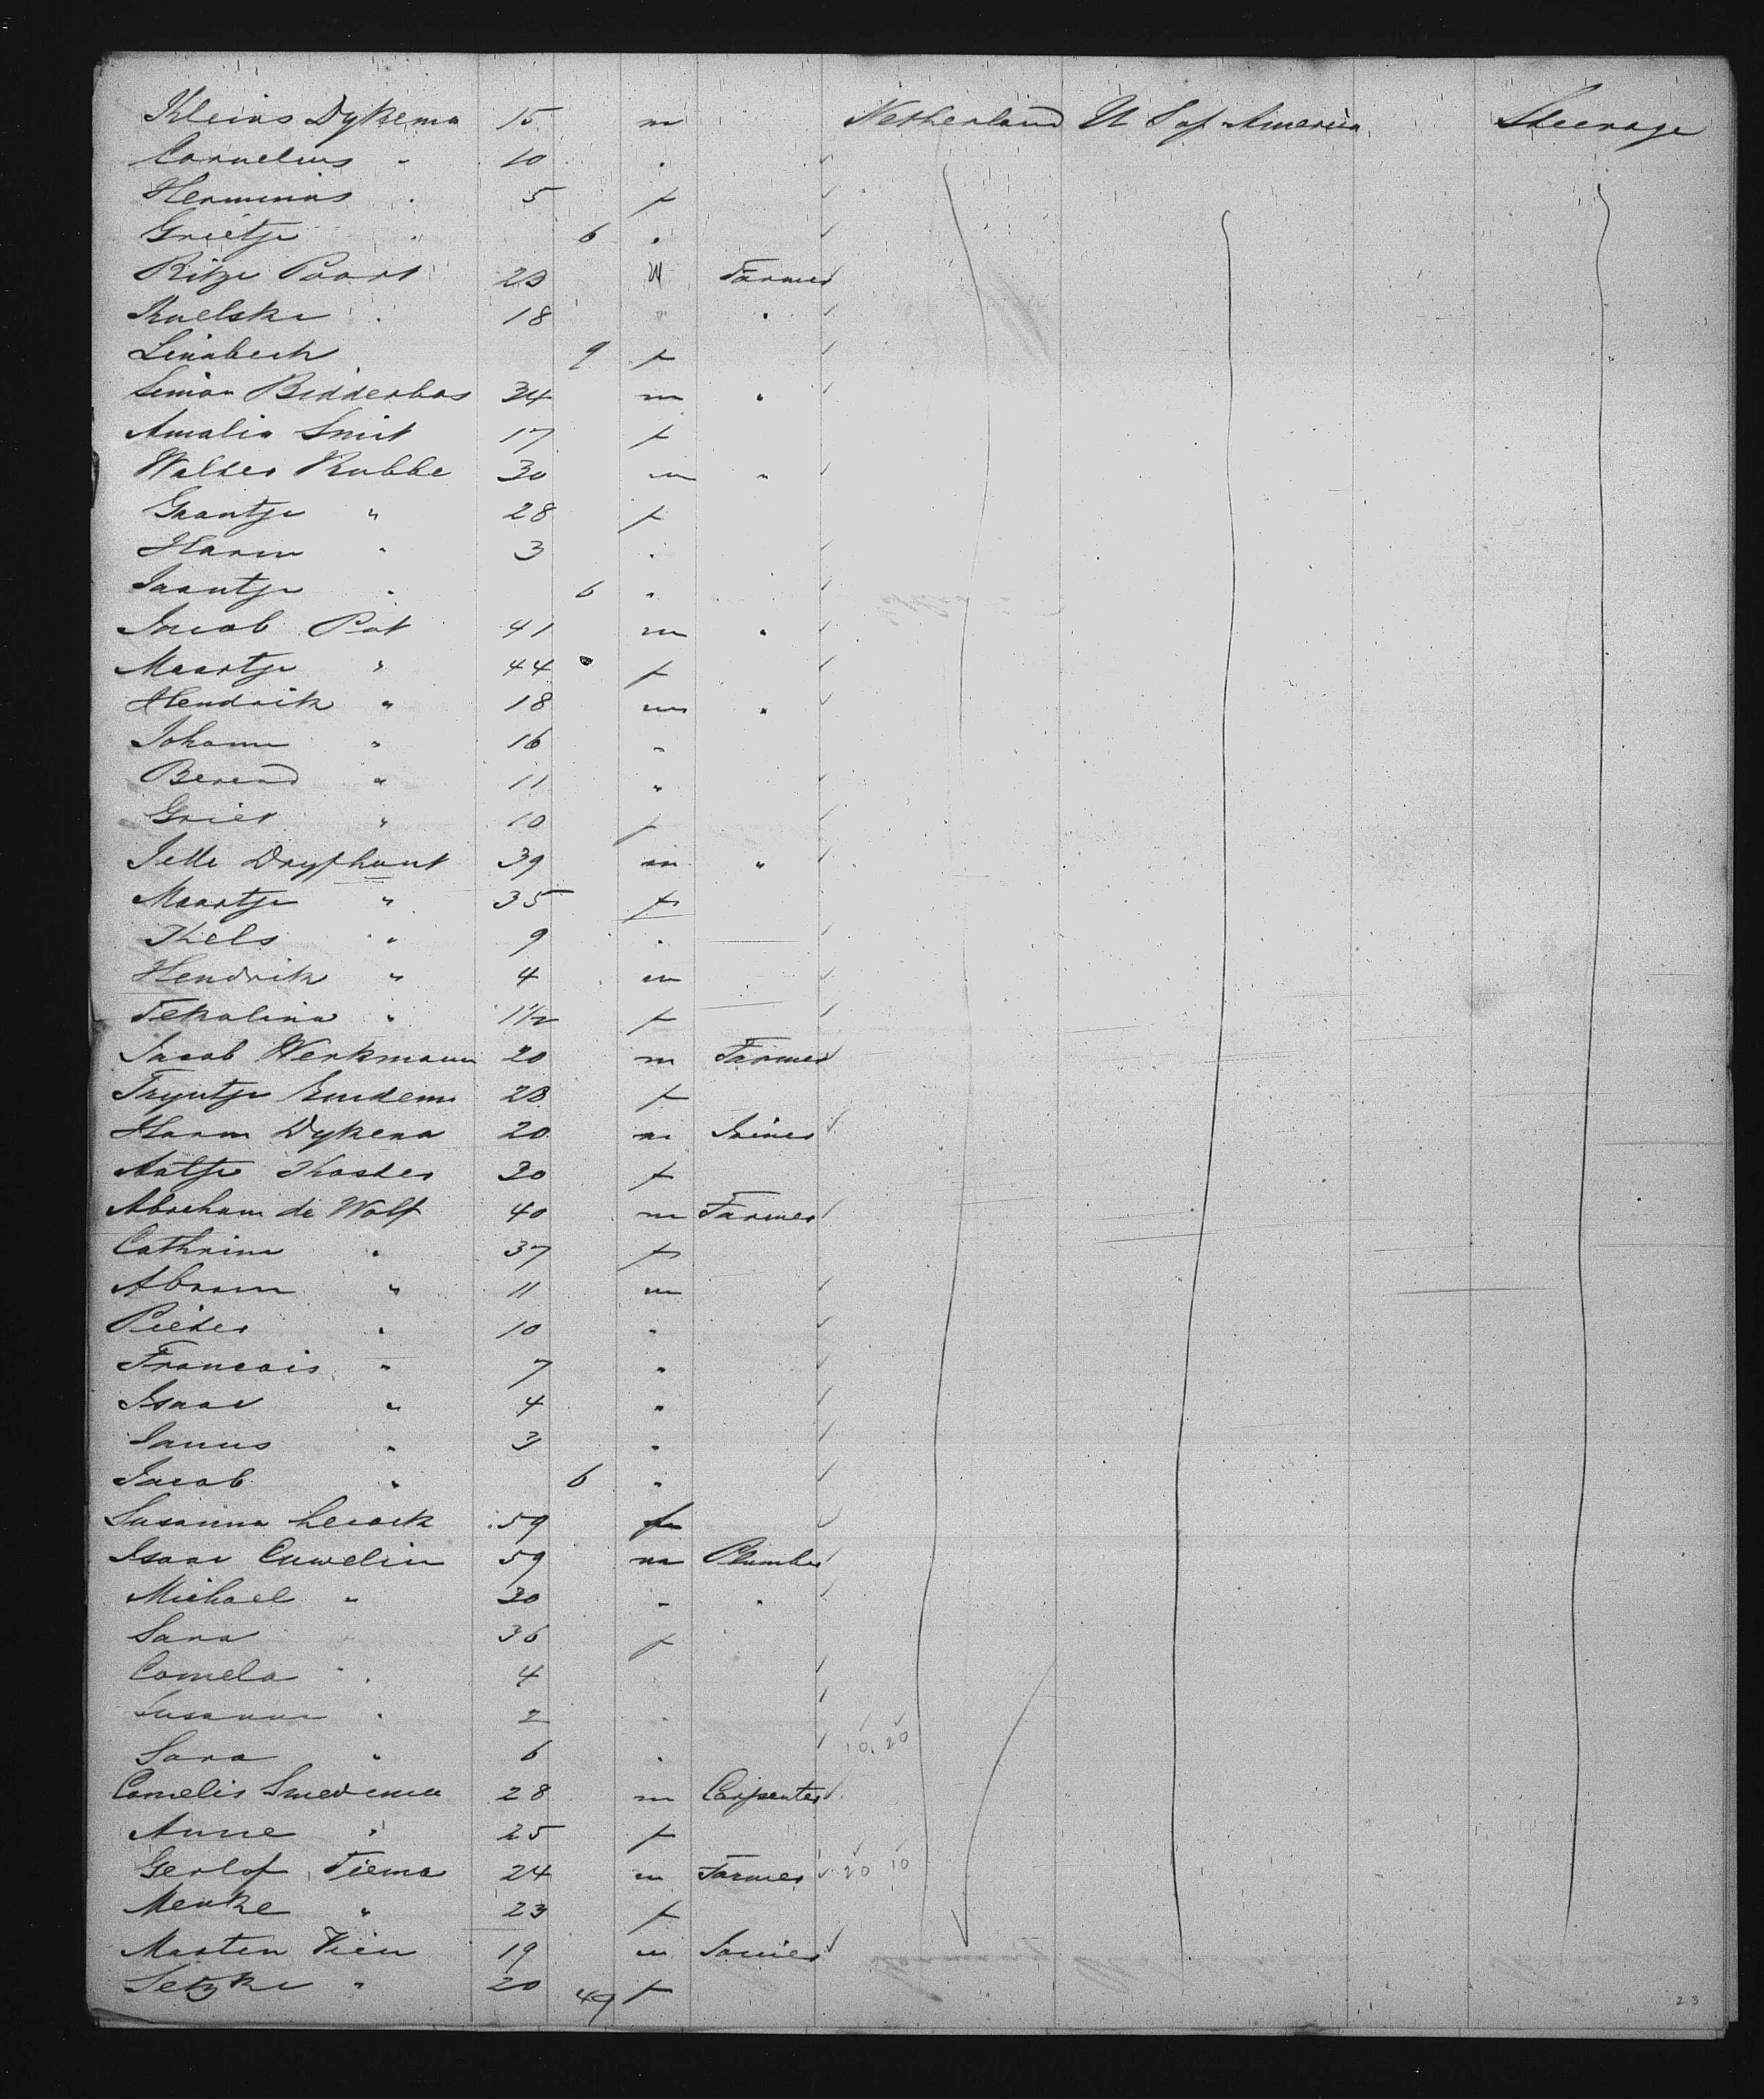 Kleins Dykema 15 m Netherland U S of America Steerage
Cornelius " 10 "
Herminus " 5 f
Grietje " 6 "
Ritze Poort 23 M Farmer
Roelske " 18 " "
Linabech 9 f
Simon Bidderbos 34 m "
Amalia Smit 17 f
Walter Rubbe 30 m "
Grantje " 28 f
Harm " 3 "
Jaantje " 6 "
Jacob Pot 41 m "
Maartje " 44 f
Hendrik " 18 m "
Johann " 16 "
Berend " 11 "
Griet " 10 f
Jelle Dryfhout 39 m "
Maartje " 35 f
Kels " 9 "
Hendrik " 4 m
Tekalina " 1 1/2 f
Jacob Werkmann 20 m Farmer
Tryntje Emdem 28 f
Harm Dykena 20 m Joiner
Aaltje Koster 30 f
Abreham de Wolf 40 m Farmer
Cathrine " 37 f
Abram " 11 m
Pieter " 10 "
Francois " 7 "
Isaac " 4 "
Janus " 3 "
Jacob " 6 "
Susanna 59 f
Isaac Cuwelin 59 m Plumber
Michael " 30 " "
Sara " 36 f
Comela " 4 "
Susanna " 2 "
Sara " 6 " 10 20
Cornelis Smedema 28 m Carpenter
Anne " 25 f
Gerlof Tiema 24 m Farmer 20 10
Menke " 23 f
Marten Vien 19 m Joiner
Setzke " 20 f
49
23